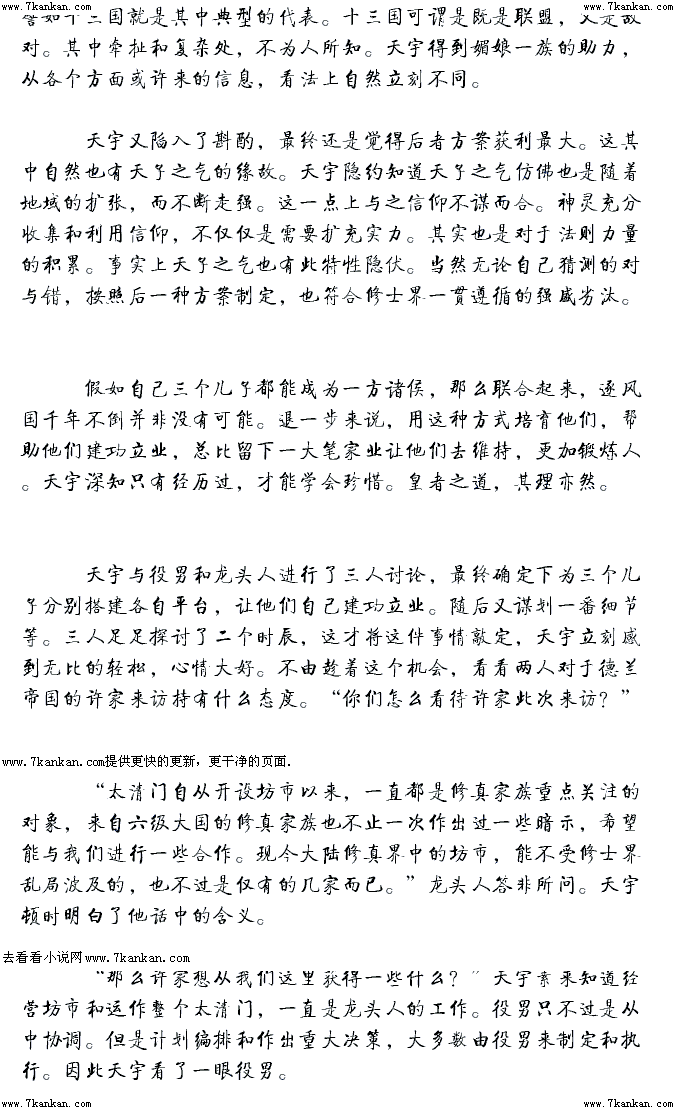 www.7kankan.com www.7kankan.com www.7kankan.com
譬如十三国就是其中典型的代表。十三国可谓是既是联盟，又是敌
对。其中牵扯和复杂处，不为人所知。天宇得到媚娘一族的助力，
从各个方面或许来的信息，看法上自然立刻不同。
天宇又陷入了斟酌，最终还是觉得后者方案获利最大。这其
中自然也有天子之气的缘故。天宇隐约知道天子之气仿佛也是随着
地域的扩张，而不断走强。这一点上与之信仰不谋而合。神灵充分
收集和利用信仰，不仅仅是需要扩充实力。其实也是对于法则力量
的积累。事实上天子之气也有此特性隐伏。当然无论自己猜测的对
与错，按照后一种方案制定，也符合修士界一贯遵循的强盛劣汰。
假如自己三个儿子都能成为一方诸侯，那么联合起来，逐风
国千年不倒并非没有可能。退一步来说，用这种方式培育他们，帮
助他们建功立业，总比留下一大笔家业让他们去维持，更加锻炼人
。天宇深知只有经历过，才能学会珍惜。皇者之道，其理亦然。
天宇与役男和龙头人进行了三人讨论，最终确定下为三个儿
子分别搭建各自平台，让他们自己建功立业。随后又谋划一番细节
等。三人足足探讨了二个时辰，这才将这件事情敲定，天宇立刻感
到无比的轻松，心情大好。不由趁着这个机会，看看两人对于德兰
帝国的许家来访持有什么态度。“你们怎么看待许家此次来访？”
www.7kankan.com提供更快的更新，更干净的页面.
“太清门自从开设坊市以来，一直都是修真家族重点关注的
对象，来自六级大国的修真家族也不止一次作出过一些暗示，希望
能与我们进行一些合作。现今大陆修真界中的坊市，能不受修士界
乱局波及的，也不过是仅有的几家而已。”龙头人答非所问。天宇
顿时明白了他话中的含义。
去看看小说网www.7kankan.com
“那么许家想从我们这里获得一些什么？”天宇素来知道经
营坊市和运作整个太清门，一直是龙头人的工作。役男只不过是从
中协调。但是计划编排和作出重大决策，大多数由役男来制定和执
行。因此天宇看了一眼役男。
www.7kankan.com www.7kankan.com www.7kankan.com